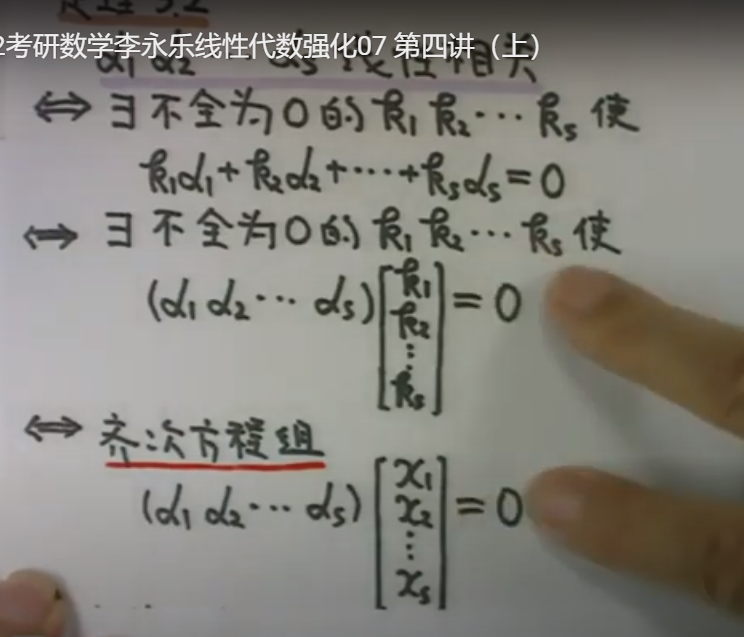 2考研数学李永乐线性代数强化07 第四讲（上）
α₁ α₂ ⋯ αₛ 线性相关
⟺ ∃ 不全为0的 k₁ k₂ ⋯ kₛ 使
k₁α₁+k₂α₂+⋯+kₛαₛ=0
⟺ ∃ 不全为0的 k₁ k₂ ⋯ kₛ 使
(α₁ α₂ ⋯ αₛ) [k₁ k₂ ⋮ kₛ] = 0
⟺ 齐次方程组
(α₁ α₂ ⋯ αₛ) [x₁ x₂ ⋮ xₛ] = 0